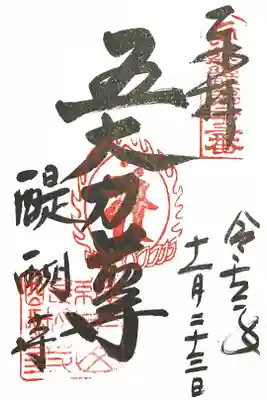 奉拝
令和元年
十一月二十三日
五大力尊
醍醐寺